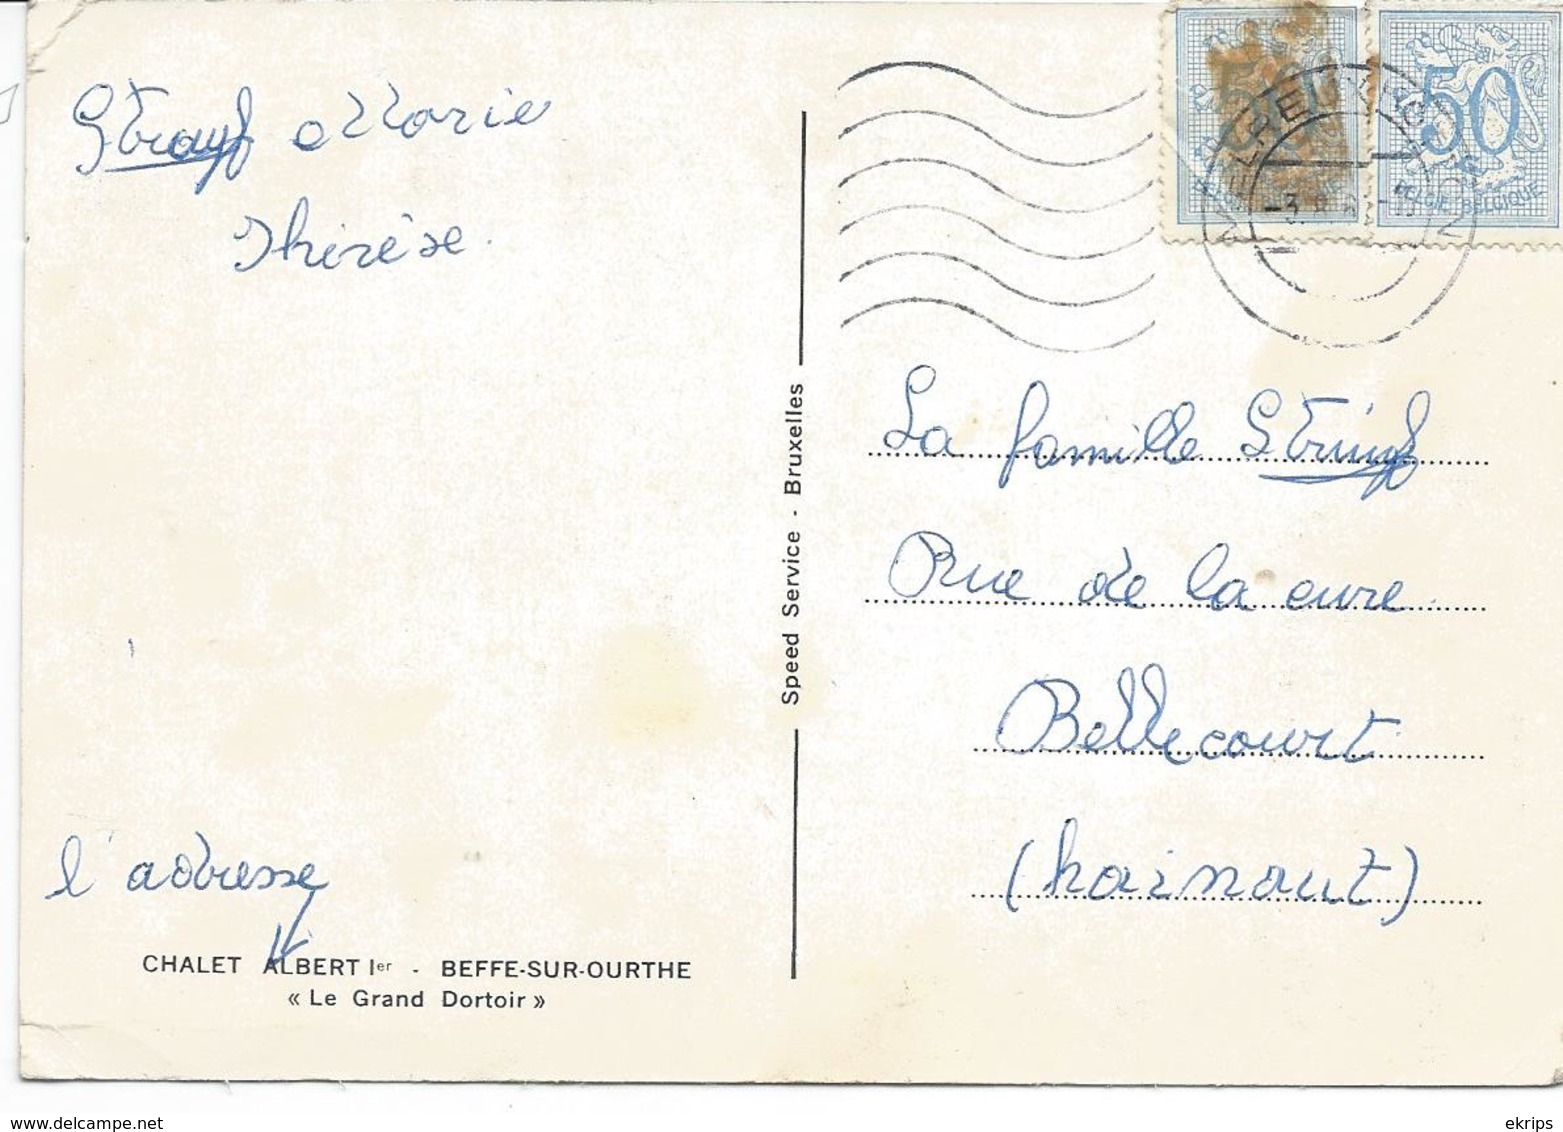 Marie
Thérèse.
l'adresse
CHALET ALBERT Ier - BEFFE-SUR-OURTHE
« Le Grand Dortoir »
Speed Service - Bruxelles
50
50
BELGIE BELGIQUE
-3
La famille
Rue de la cure
Bellecourt
(hainaut)
www.delcampe.net
ekrips